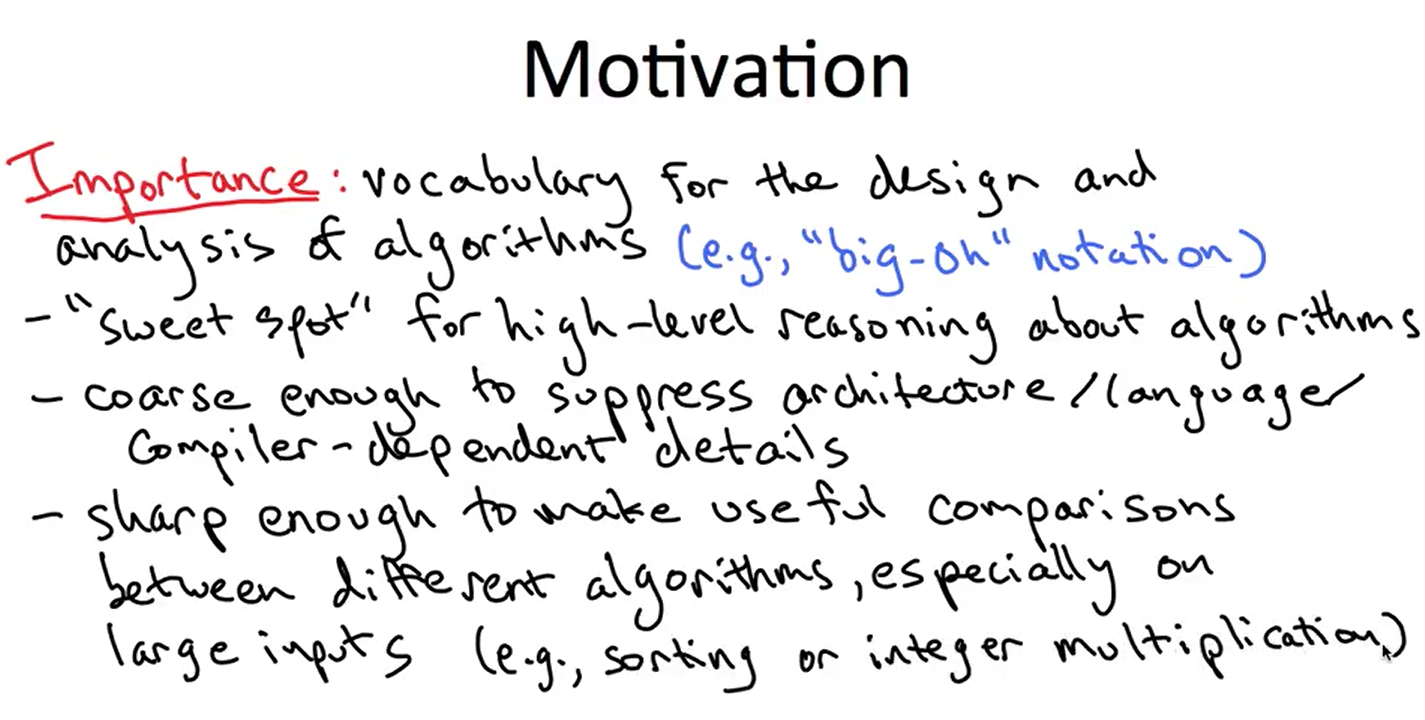 Motivation
Importance: vocabulary for the design and
analysis of algorithms (e.g., "big-oh" notation)
- "sweet spot" for high-level reasoning about algorithms
- coarse enough to suppress architecture/language/
compiler-dependent details
- sharp enough to make useful comparisons
between different algorithms, especially on
large inputs (e.g., sorting or integer multiplication)